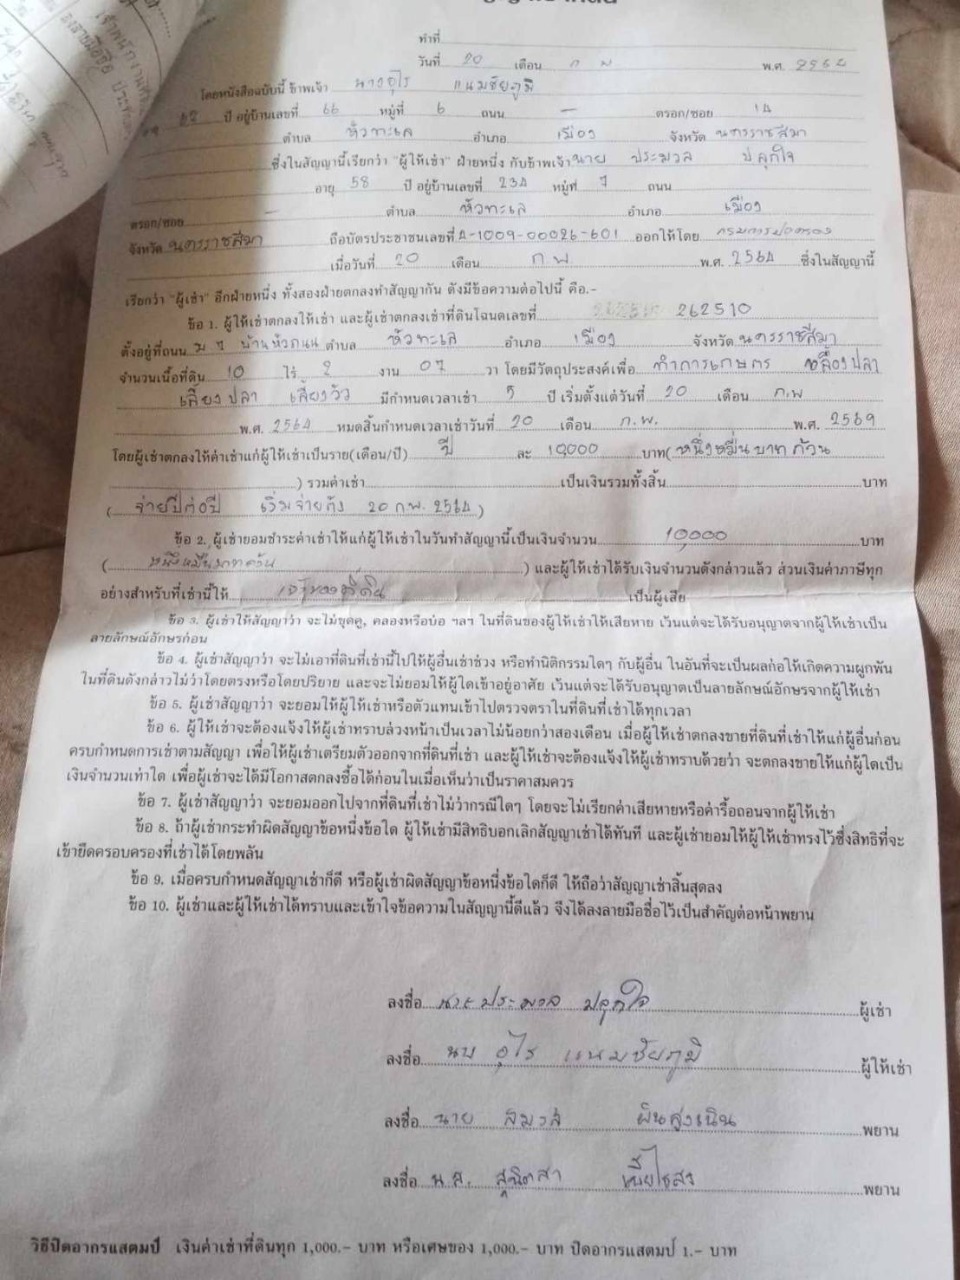 ทำที่
วันที่ 20 เดือน ก พ พ.ศ. 2564
โดยหนังสือฉบับนี้ ข้าพเจ้า นางอุไร แนมชัยภูมิ
ปี อยู่บ้านเลขที่ 66 หมู่ที่ 6 ถนน — ตรอก/ซอย 14
ตำบล หัวทะเล อำเภอ เมือง จังหวัด นครราชสีมา
ซึ่งในสัญญานี้เรียกว่า "ผู้ให้เช่า" ฝ่ายหนึ่ง กับข้าพเจ้า นาย ประมวล ปลุกใจ
อายุ 58 ปี อยู่บ้านเลขที่ 234 หมู่ที่ 7 ถนน
ตรอก/ซอย — ตำบล หัวทะเล อำเภอ เมือง
จังหวัด นครราชสีมา ถือบัตรประชาชนเลขที่ 4-1009-00026-601 ออกให้โดย กรมการปกครอง
เมื่อวันที่ 20 เดือน ก.พ. พ.ศ. 2564 ซึ่งในสัญญานี้
เรียกว่า "ผู้เช่า" อีกฝ่ายหนึ่ง ทั้งสองฝ่ายตกลงทำสัญญากัน ดังมีข้อความต่อไปนี้ คือ.-
ข้อ 1. ผู้ให้เช่าตกลงให้เช่า และผู้เช่าตกลงเช่าที่ดินโฉนดเลขที่ 262510
ตั้งอยู่ที่ถนน ม 7 บ้านหัวถนน ตำบล หัวทะเล อำเภอ เมือง จังหวัด นครราชสีมา
จำนวนเนื้อที่ดิน 10 ไร่ 2 งาน 07 วา โดยมีวัตถุประสงค์เพื่อ ทำการเกษตร
เลี้ยงปลา เลี้ยงวัว มีกำหนดเวลาเช่า 5 ปี เริ่มตั้งแต่วันที่ 20 เดือน ก.พ
พ.ศ. 2564 หมดสิ้นกำหนดเวลาเช่าวันที่ 20 เดือน ก.พ. พ.ศ. 2569
โดยผู้เช่าตกลงให้ค่าเช่าแก่ผู้ให้เช่าเป็นราย(เดือน/ปี) ปี ละ 10,000 บาท( หนึ่งหมื่นบาทถ้วน
) รวมค่าเช่า เป็นเงินรวมทั้งสิ้น บาท
( จ่ายปีต่อปี เริ่มจ่ายตั้ง 20 ก.พ. 2564 )
ข้อ 2. ผู้เช่ายอมชำระค่าเช่าให้แก่ผู้ให้เช่าในวันทำสัญญานี้เป็นเงินจำนวน 10,000 บาท
( หนึ่งหมื่นบาทถ้วน ) และผู้ให้เช่าได้รับเงินจำนวนดังกล่าวแล้ว ส่วนเงินค่าภาษีทุก
อย่างสำหรับที่เช่านี้ให้ เจ้าของที่ดิน เป็นผู้เสีย
ข้อ 3. ผู้เช่าให้สัญญาว่า จะไม่ขุดคู, คลองหรือบ่อ ฯลฯ ในที่ดินของผู้ให้เช่าให้เสียหาย เว้นแต่จะได้รับอนุญาตจากผู้ให้เช่าเป็น
ลายลักษณ์อักษรก่อน
ข้อ 4. ผู้เช่าสัญญาว่า จะไม่เอาที่ดินที่เช่านี้ไปให้ผู้อื่นเช่าช่วง หรือทำนิติกรรมใดๆ กับผู้อื่น ในอันที่จะเป็นผลก่อให้เกิดความผูกพัน
ในที่ดินดังกล่าวไม่ว่าโดยตรงหรือโดยปริยาย และจะไม่ยอมให้ผู้ใดเข้าอยู่อาศัย เว้นแต่จะได้รับอนุญาตเป็นลายลักษณ์อักษรจากผู้ให้เช่า
ข้อ 5. ผู้เช่าสัญญาว่า จะยอมให้ผู้ให้เช่าหรือตัวแทนเข้าไปตรวจตราในที่ดินที่เช่าได้ทุกเวลา
ข้อ 6. ผู้ให้เช่าจะต้องแจ้งให้ผู้เช่าทราบล่วงหน้าเป็นเวลาไม่น้อยกว่าสองเดือน เมื่อผู้ให้เช่าตกลงขายที่ดินที่เช่าให้แก่ผู้อื่นก่อน
ครบกำหนดการเช่าตามสัญญา เพื่อให้ผู้เช่าเตรียมตัวออกจากที่ดินที่เช่า และผู้ให้เช่าจะต้องแจ้งให้ผู้เช่าทราบด้วยว่า จะตกลงขายให้แก่ผู้ใดเป็น
เงินจำนวนเท่าใด เพื่อผู้เช่าจะได้มีโอกาสตกลงซื้อได้ก่อนในเมื่อเห็นว่าเป็นราคาสมควร
ข้อ 7. ผู้เช่าสัญญาว่า จะยอมออกไปจากที่ดินที่เช่าไม่ว่ากรณีใดๆ โดยจะไม่เรียกค่าเสียหายหรือค่ารื้อถอนจากผู้ให้เช่า
ข้อ 8. ถ้าผู้เช่ากระทำผิดสัญญาข้อหนึ่งข้อใด ผู้ให้เช่ามีสิทธิบอกเลิกสัญญาเช่าได้ทันที และผู้เช่ายอมให้ผู้ให้เช่าทรงไว้ซึ่งสิทธิที่จะ
เข้ายึดครอบครองที่เช่าได้โดยพลัน
ข้อ 9. เมื่อครบกำหนดสัญญาเช่าก็ดี หรือผู้เช่าผิดสัญญาข้อหนึ่งข้อใดก็ดี ให้ถือว่าสัญญาเช่าสิ้นสุดลง
ข้อ 10. ผู้เช่าและผู้ให้เช่าได้ทราบและเข้าใจข้อความในสัญญานี้ดีแล้ว จึงได้ลงลายมือชื่อไว้เป็นสำคัญต่อหน้าพยาน
ลงชื่อ นายประมวล ปลุกใจ ผู้เช่า
ลงชื่อ นาง อุไร แนมชัยภูมิ ผู้ให้เช่า
ลงชื่อ นาย พยาน
ลงชื่อ น.ส. สุนิตสา พยาน
วิธีปิดอากรแสตมป์ เงินค่าเช่าที่ดินทุก 1,000.- บาท หรือเศษของ 1,000.- บาท ปิดอากรแสตมป์ 1.- บาท